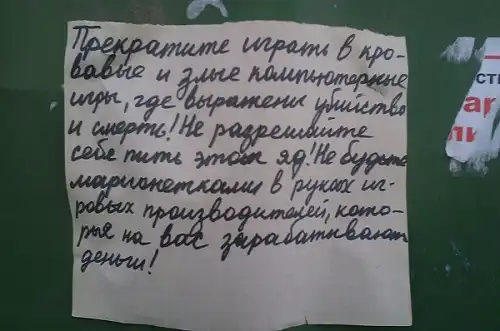 Прекратите играть в кро-
вавые и злые компьютерные
игры, где выражены убийство
и смерть! Не разрешайте
себе пить этот яд! Не будьте
марионетками в руках иг-
ровых производителей, кото-
рыя на вас зарабатывают
деньги!
ст
ар
ли